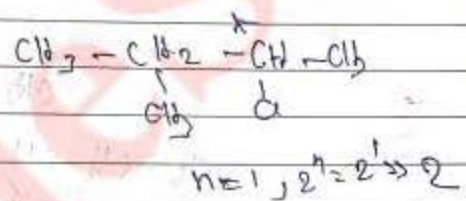 *
CH3 - CH2 - CH - CH3
CH3 Cl
n = 1, 2^n = 2^1 => 2